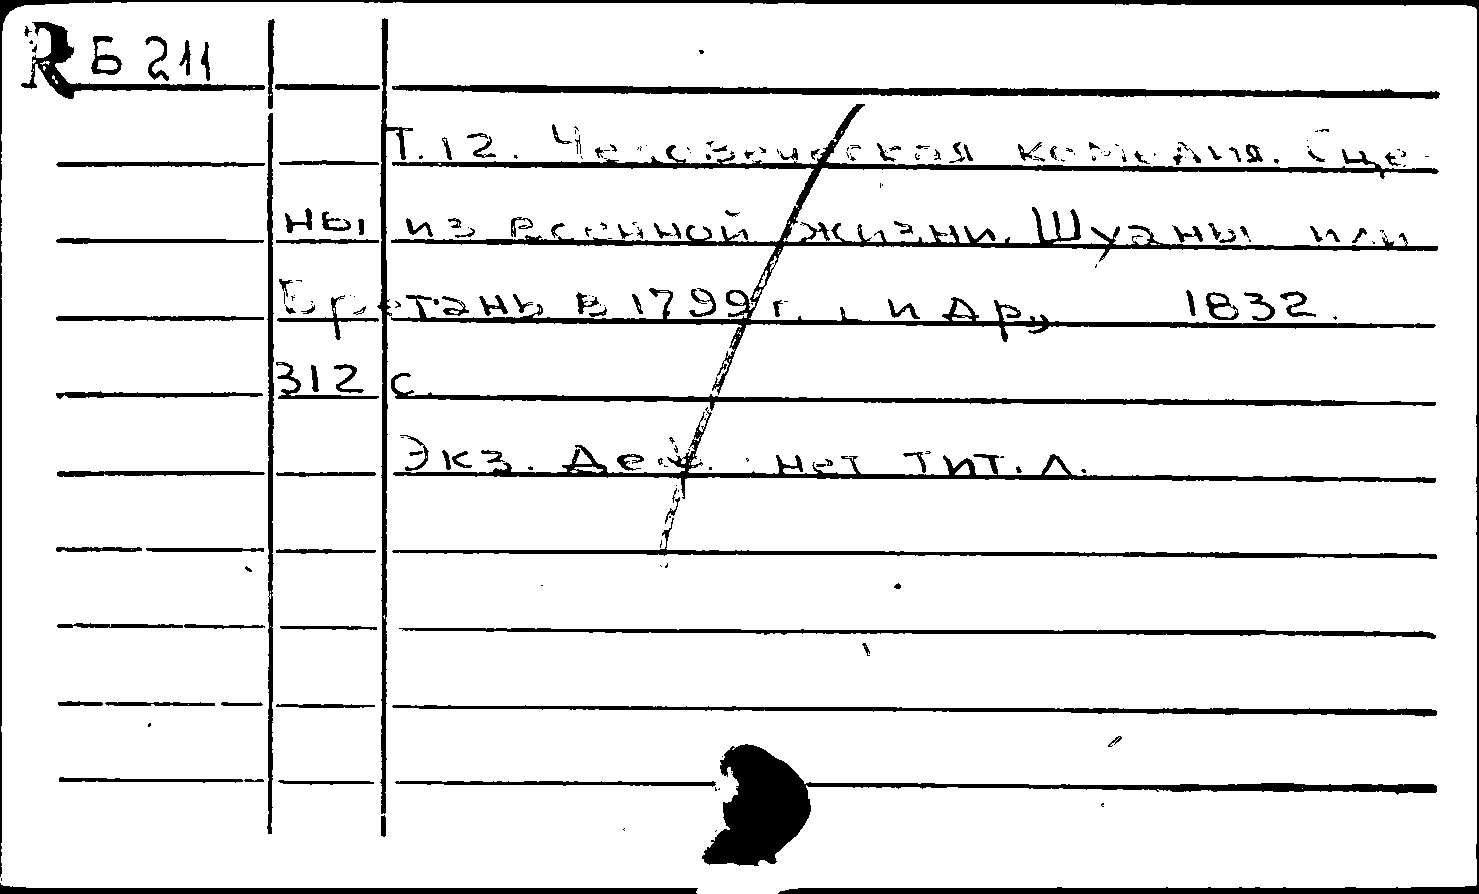 R Б 211
Т.12. Человеческая комедия. Сце-
ны из военной жизни. Шуаны или
Бретань в 1799 г., и др., 1832.
312 с.
Экз. деф. : нет тит. л.